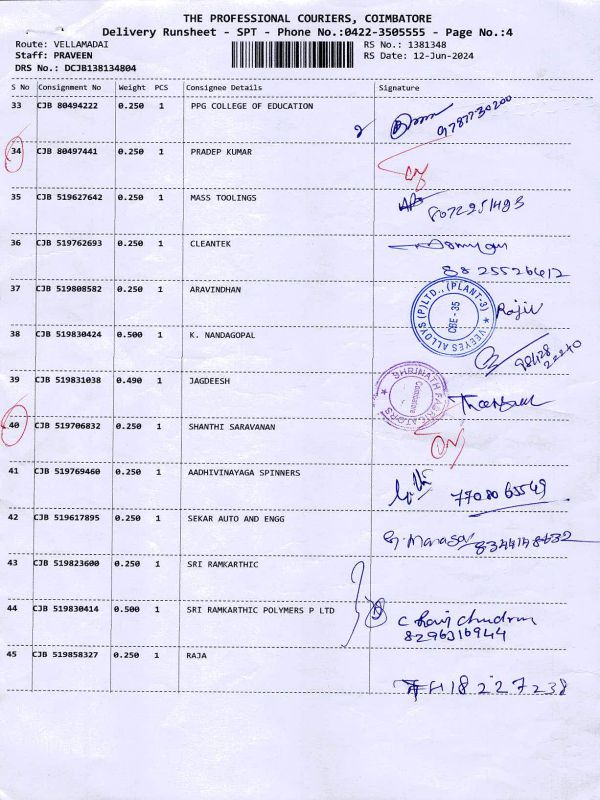 THE PROFESSIONAL COURIERS, COIMBATORE
Delivery Runsheet - SPT - Phone No.:0422-3505555 - Page No.:4
Route: VELLAMADAI RS No.: 1381348
Staff: PRAVEEN RS Date: 12-Jun-2024
DRS No.: DCJB138134804
S No Consignment No Weight PCS Consignee Details Signature
33 CJB 80494222 0.250 1 PPG COLLEGE OF EDUCATION
9787730200
34 CJB 80497441 0.250 1 PRADEP KUMAR
35 CJB 519627642 0.250 1 MASS TOOLINGS
8072951493
36 CJB 519762693 0.250 1 CLEANTEK
88 25526412
37 CJB 519808582 0.250 1 ARAVINDHAN
VEEYES ALLOYS (P)LTD., (PLANT-3) ★ CBE - 35
Rajiv
38 CJB 519830424 0.500 1 K. NANDAGOPAL
39 CJB 519831038 0.490 1 JAGDEESH
SHRINATH FABRICATORS ★ Coimbatore
40 CJB 519706832 0.250 1 SHANTHI SARAVANAN
41 CJB 519769460 0.250 1 AADHIVINAYAGA SPINNERS
7708065549
42 CJB 519617895 0.250 1 SEKAR AUTO AND ENGG
8344148632
43 CJB 519823600 0.250 1 SRI RAMKARTHIC
44 CJB 519830414 0.500 1 SRI RAMKARTHIC POLYMERS P LTD
8296316944
45 CJB 519858327 0.250 1 RAJA
18227238